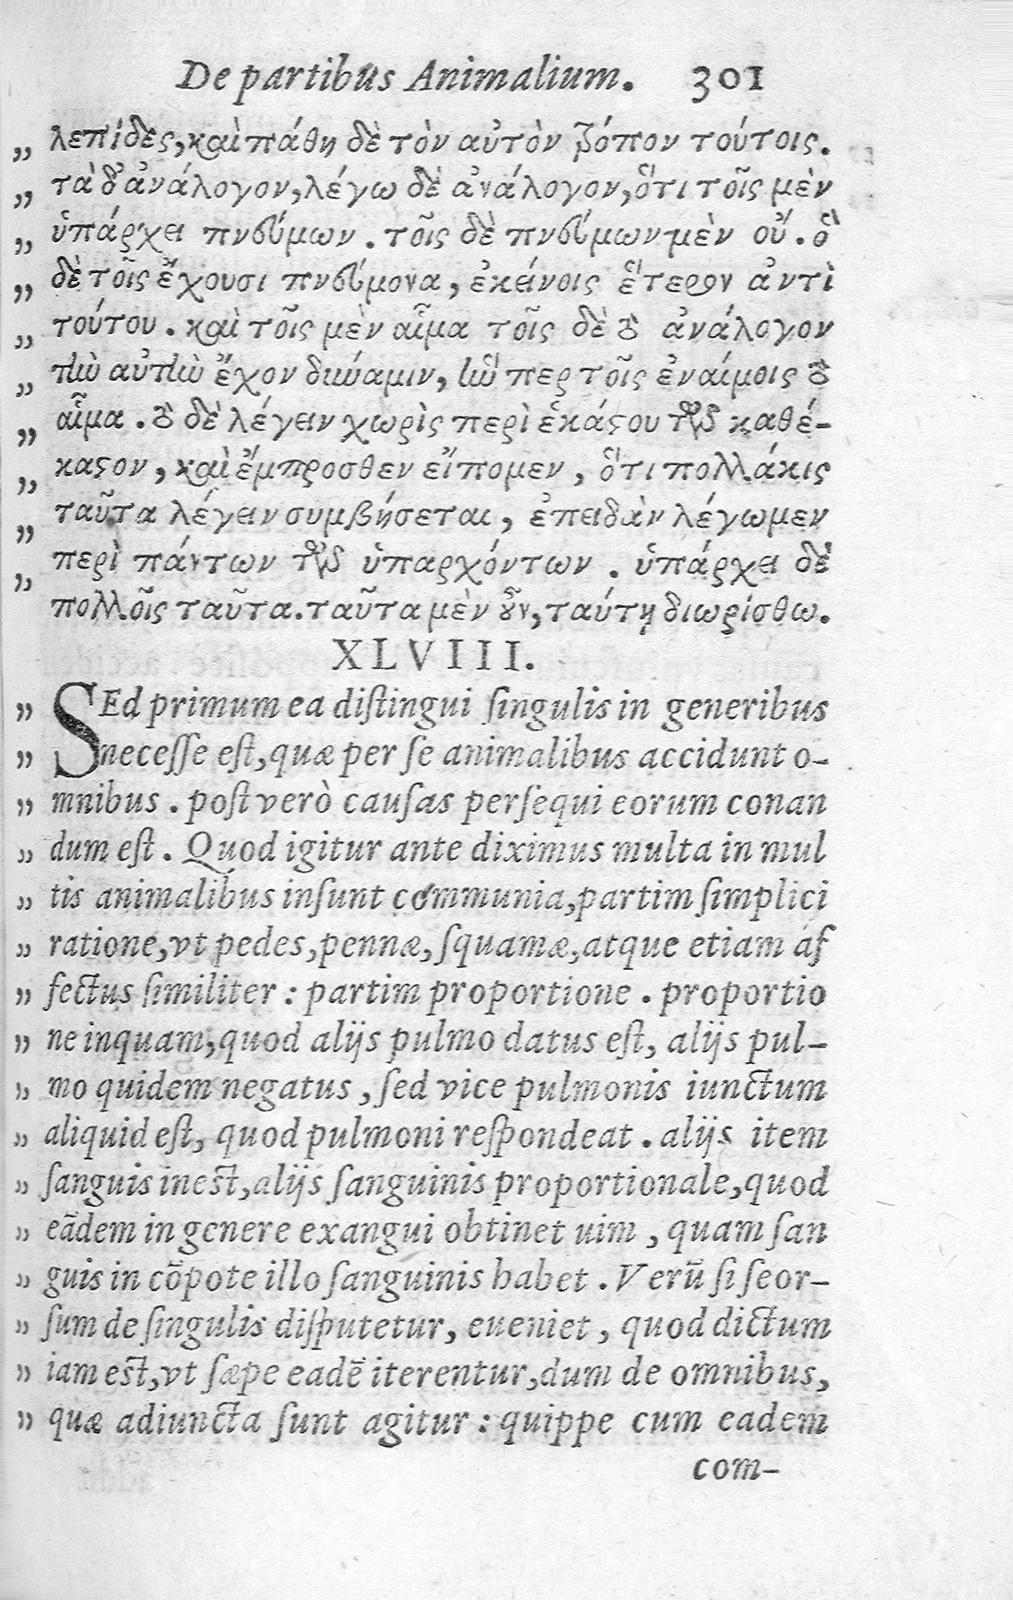 De partibus Animalium. 301
„ λεπίδες, καὶ πάθη δὲ τὸν αὐτὸν τρόπον τούτοις.
„ τὰ δ' ἀνάλογον, λέγω δὲ ἀνάλογον, ὅτι τοῖς μὲν
„ ὑπάρχει πνεύμων. τοῖς δὲ πνεύμων μὲν οὔ. ὃ
„ δὲ τοῖς ἔχουσι πνεύμονα, ἐκείνοις ἕτερον ἀντὶ
„ τούτου. καὶ τοῖς μὲν αἷμα τοῖς δὲ τὸ ἀνάλογον
„ τὴν αὐτὴν ἔχον δύναμιν, ἣν περ τοῖς ἐναίμοις τὸ
„ αἷμα. τὸ δὲ λέγειν χωρὶς περὶ ἑκάστου τῶν καθέ-
„ καστον, καὶ ἔμπροσθεν εἴπομεν, ὅτι πολλάκις
„ ταῦτα λέγειν συμβήσεται, ἐπειδὰν λέγωμεν
„ περὶ πάντων τῶν ὑπαρχόντων. ὑπάρχει δὲ
πολλοῖς ταῦτα. ταῦτα μὲν οὖν, ταύτη διωρίσθω.
XLVIII.
„ SEd primum ea distingui singulis in generibus
„ necesse est, quæ per se animalibus accidunt o-
„ mnibus. post verò causas persequi eorum conan
„ dum est. Quod igitur ante diximus multa in mul
„ tis animalibus insunt communia, partim simplici
„ ratione, vt pedes, pennæ, squamæ, atque etiam af
„ fectus similiter: partim proportione. proportio
„ ne inquam, quod alijs pulmo datus est, alijs pul-
„ mo quidem negatus, sed vice pulmonis iunctum
„ aliquid est, quod pulmoni respondeat. alijs item
„ sanguis inest, alijs sanguinis proportionale, quod
„ eãdem in genere exangui obtinet uim, quam san
„ guis in cõpote illo sanguinis habet. Verũ si seor-
„ sum de singulis disputetur, eueniet, quod dictum
„ iam est, vt sæpe eadẽ iterentur, dum de omnibus,
„ quæ adiuncta sunt agitur: quippe cum eadem
com-